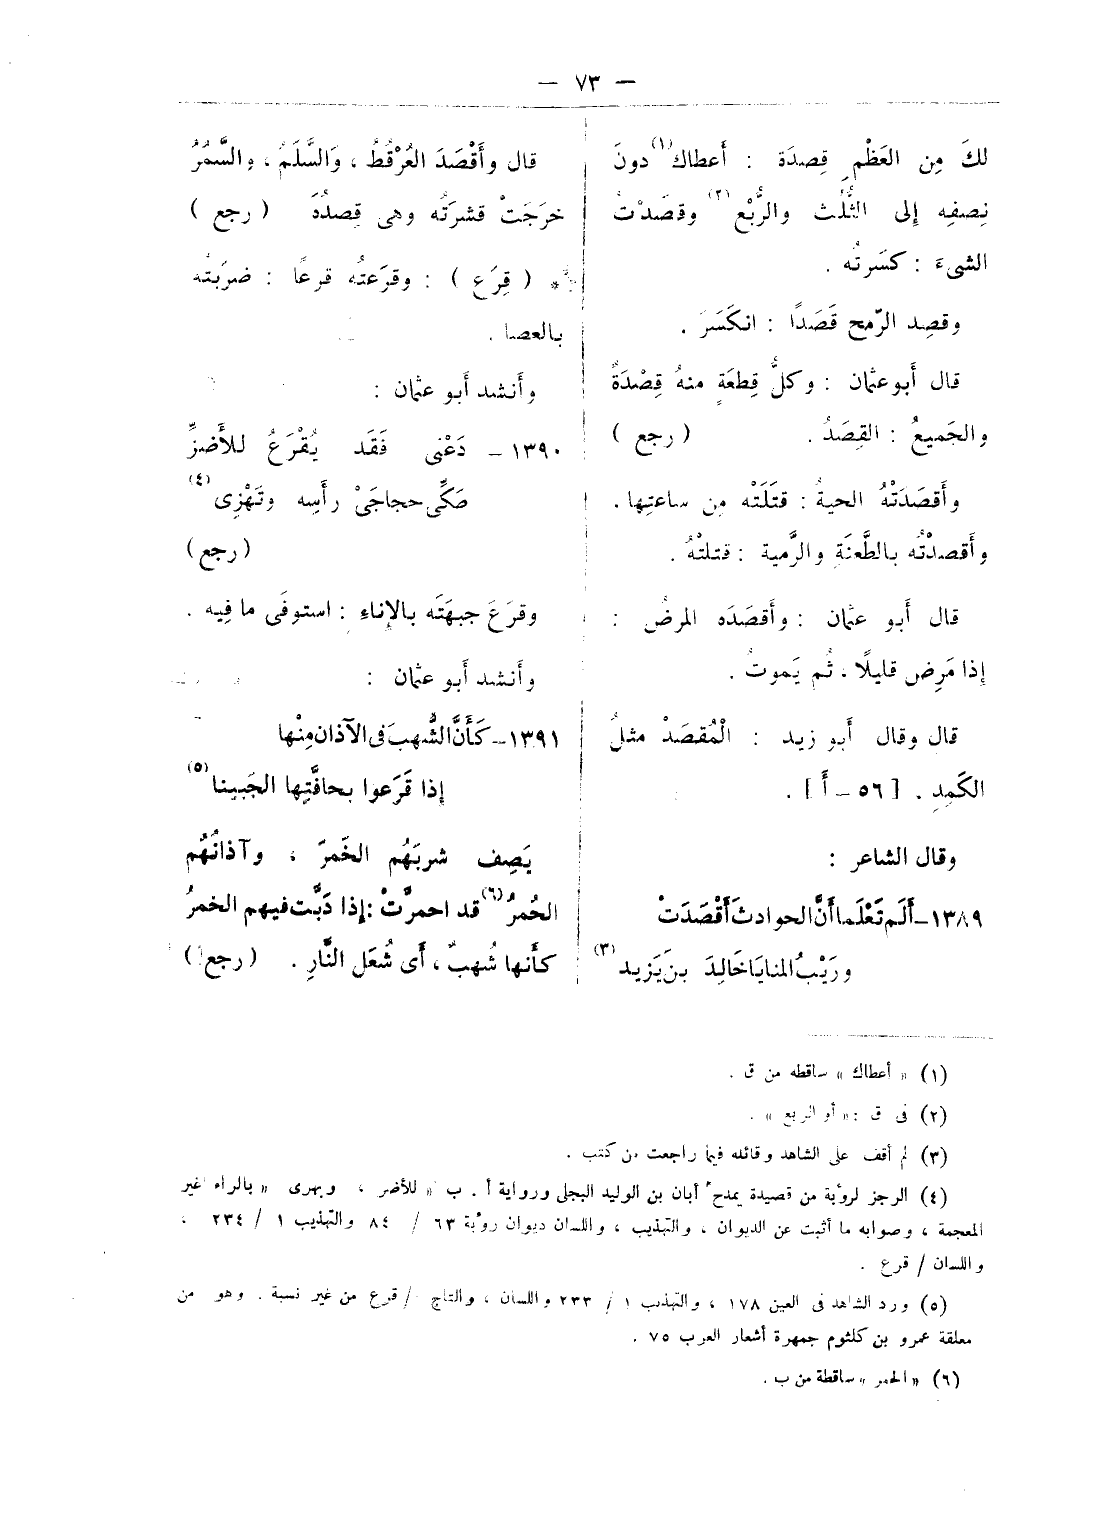 — ٧٣ —
لكَ مِن العَظْمِ قِصدَة : أَعطاك(١) دونَ
نِصفِه إلى الثُّلُث والرُّبْع(٢) وقصَدْتُ
الشىءَ : كسَرتُه .
وقصِد الرّمح قَصَدًا : انكَسَرَ .
قال أَبو عثمان : وكلُّ قِطعَةٍ منهُ قِصْدَةٌ
والجَميعُ : القِصَدُ . ( رجع )
وأَقصَدَتْهُ الحيةُ : قتَلَتْه مِن ساعتِها .
وأَقصدْتُه بالطَّعنَةِ والرَّمية : قتلتْهُ .
قال أَبو عثمان : وأَقصَدَه المرضُ :
إذا مَرِض قليلًا ، ثُم يَموتُ .
قال وقال أَبو زيد : الْمُقصَدْ مثلُ
الكَمِدِ . [ ٥٦ – أَ ] .
وقال الشاعر :
١٣٨٩– أَلَم تَعْلَما أَنَّ الحوادثَ أَقْصَدَتْ
ورَيْبُ المنايَا خَالِدَ بنَ يَزيد(٣)
قال وأَقْصَدَ العُرْفُطُ ، وَالسَّلَمُ ، والسَّمُرُ
خرَجَتْ قشرَتُه وهى قِصدُهُ ( رجع )
* ( قِرَع ) : وقرَعتُه قرعًا : ضرَبتُه
بالعصا .
وأَنشد أَبو عثمان :
١٣٩٠– دَعْنى فَقَد يُقْرَعُ للأَضزِّ
صَكِّى حجاجَىْ رأَسِه وتَهْزِى(٤)
( رجع )
وقرَعَ جبهَتَه بالإناءِ : استوفَى ما فِيه .
وأَنشد أَبو عثمان :
١٣٩١– كَأَنَّ الشُّهبَ فى الآذان مِنْها
إذا قَرَعوا بحافَّتِها الجَبينا(٥)
يَصِف شربَهُم الخَمرَ ، وآذانُهُم
الحُمرُ(٦) قد احمرَّتْ : إذا دَبَّت فيهم الخمرُ
كأنها شُهبٌ ، أَى شُعَل النَّارِ . ( رجع )
(١) « أعطاك » ساقطه من ق .
(٢) فى ق : « أو الربع » .
(٣) لم أقف على الشاهد وقائله فيما راجعت من كتب .
(٤) الرجز لرؤبة من قصيدة يمدح أبان بن الوليد البجلى ورواية أ . ب « للأضر ، ويهرى » بالراء غير
المعجمة ، وصوابه ما أثبت عن الديوان ، والتهذيب ، واللسان ديوان رؤبة ٦٣ / ٨٤ والتهذيب ١ / ٢٣٤ ،
واللسان / قرع .
(٥) ورد الشاهد فى العين ١٧٨ ، والتهذيب ١ / ٢٣٣ واللسان ، والتاج / قرع من غير نسبة . وهو من
معلقة عمرو بن كلثوم جمهرة أشعار العرب ٧٥ .
(٦) « الحمر » ساقطة من ب .